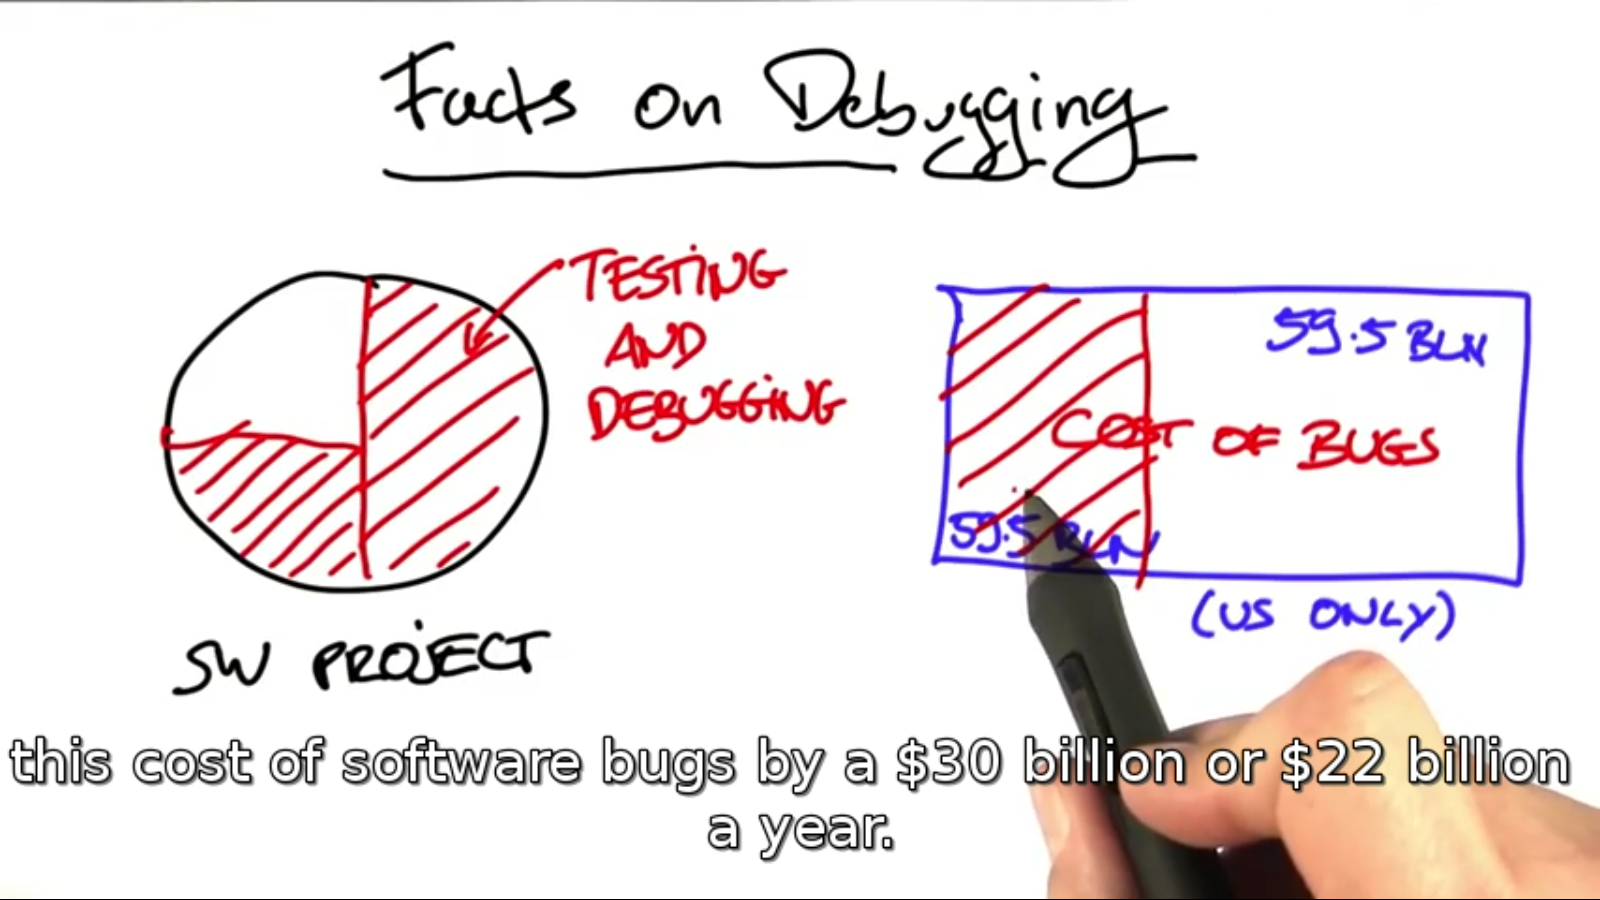 Facts on Debugging
TESTING
AND
DEBUGGING
59.5 BLN
COST OF BUGS
59.5 BLN
(US ONLY)
SW PROJECT
this cost of software bugs by a $30 billion or $22 billion
a year.